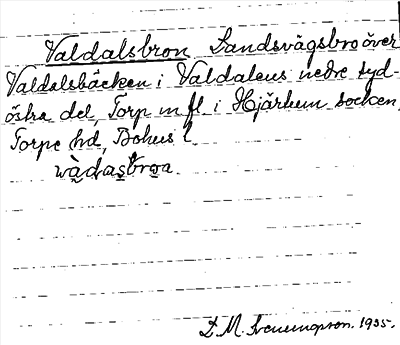 Valdalsbron Landsvägsbro över
Valdalsbäcken i Valdalens nedre syd-
östra del, Torp m fl i Hjärtum socken,
Torpe hd, Bohus l.
wàdasbroa.
D. M. 1935.